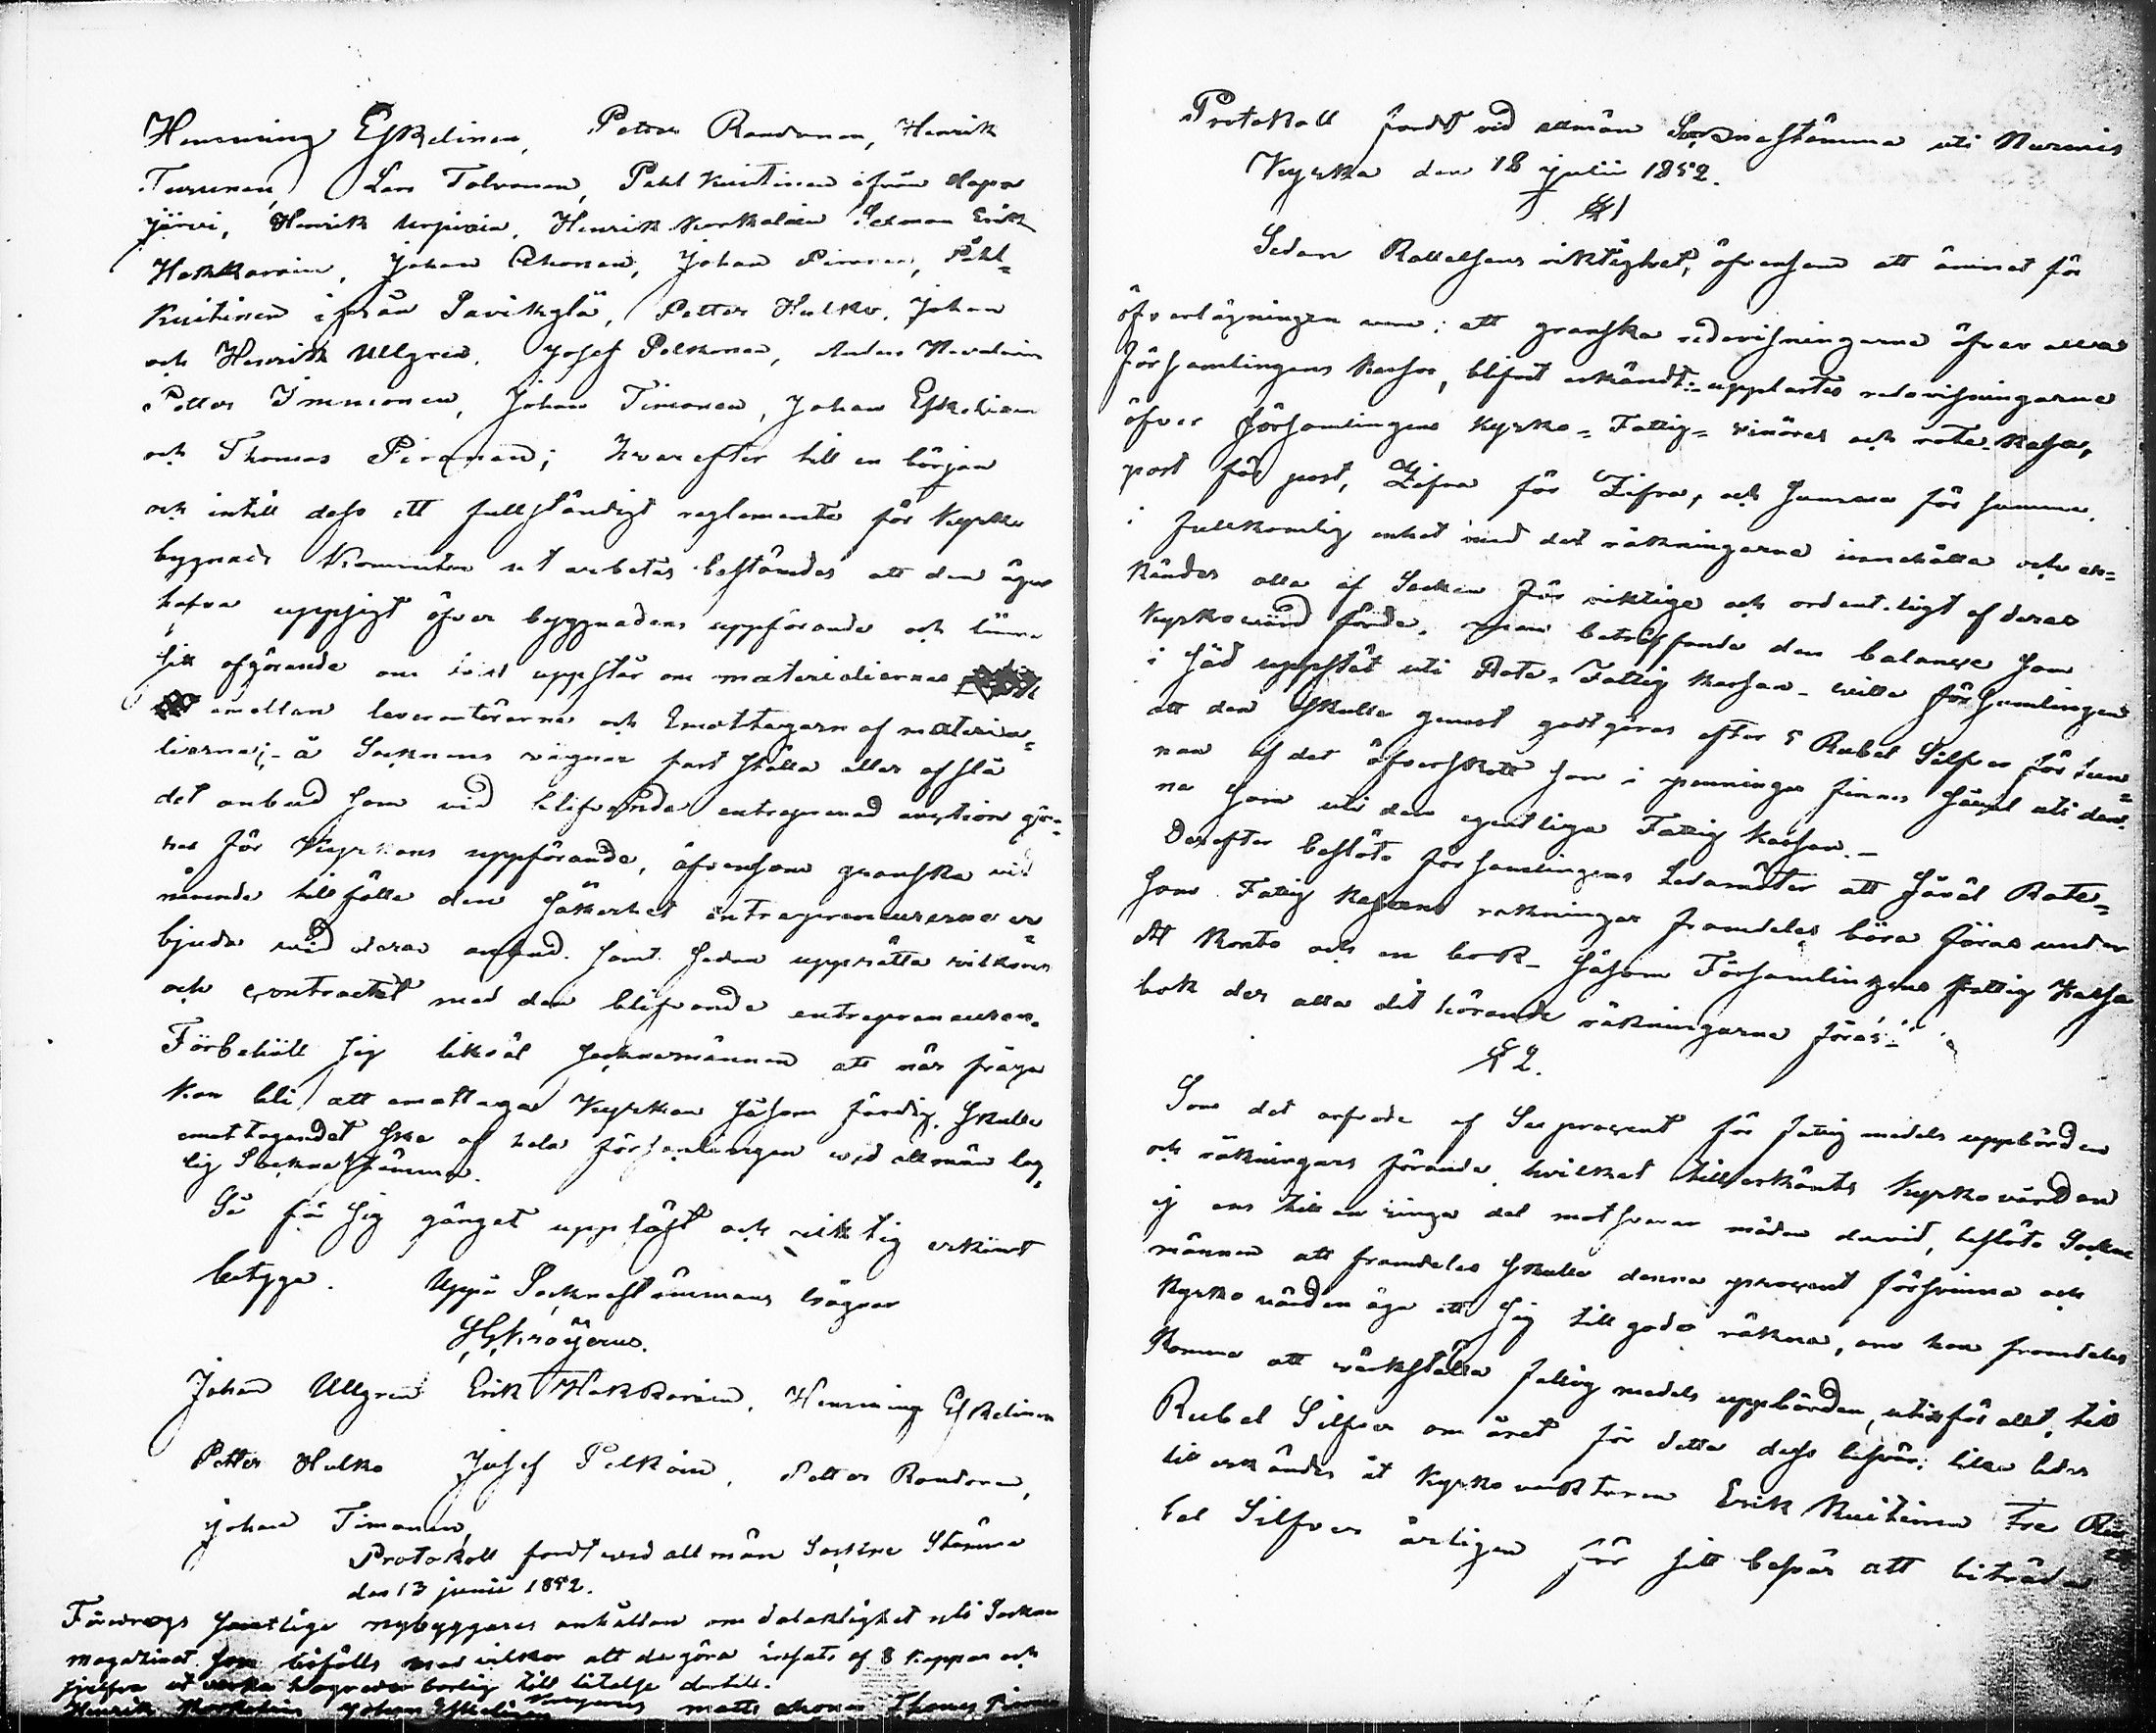 Henning Eskelinen, Petter Randonen, Henrik
Turunen, Lars Tolvonen, Påhl Kuitinen ifrån Hapa
järvi, Henrik Urpiain, Henrik Korkalain Sexman Erik
Hakkarain, Johan Ahonen, Johan Piranen, Påhl-
Kuitinen ifrån Savikylä, Petter Hulko, Johan
och Henrik Ullgren, Josef Pelkonen, Anders Nevalain
Petter Immonen, Johan Timonen, Johan Eskelinen
och Thomas Piranen; hvarefter till en början
och intill dess ett fullständigt reglemente för Kyrko
bygnads Kommiten utarbetas bestämdes att den äger
hafva uppsigt öfver byggnadens uppförande och lämna
sitt afgörande om tvist uppstår om materialiernas
emellan leverantörerne och Emottagarn af materia-
lierna; - å Socknens vägnar fast ställa eller afslå
det anbud som vid blifvande entreprenad auction gö-
res för Kyrkans uppförande, äfvensom granska vid
nämnde tillfälle den säkerhet entrepreneurerne er-
bjuda wid deras anbud. samt sedan upprätta vilkoren
och contractet med den blifvande entrepreneuren.
Förbehöll sig likväl socknemännen att när fråga
kan bli att emottaga Kyrkan såsom färdig, skulle
emottagandet ske af hela församlingen wid allmän lag-
lig Sockne stämma.
Så för sig gånget uppläst och riktig erkänt
betyga. Uppå Socknestämmans vägnar
Johan Ullgren Erik Hakkarain, Henning Eskelinen
Petter Hulko Josef Pelkoin, Petter Randonen,
Johan Timonen,
Protokoll fördt wid allmän Sockne Stämma
den 13 junii 1852.
Föredrogs samtlige nybyggares anhållan om delaktighet uti Socken
magazinet som bifölls med vilkor att de göra insats af 8 kappar och
Henrik Korkalain Johan Eskelinen matts Ahonen Thomas Piranen
Protokoll fördt vid allmän Socknestämma uti Nurmis
Kyrka den 18 julii 1852.
§ 1
Sedan Kallelsens riktighet, äfvensom att ämnet för
öfverlägningen var: att granska redovisningarne öfver alla
församlingens kassor, blifvit erkändt: upplästes redovisningarne
öfver församlingens Kyrko- Fattig- och rote-kassa,
post för post, Zifra för Zifra, och summa för summa.
i fullkomlig enhet med det räkningarne innehålla och er-
kändes alla af Socken för riktige och ordentligt af deras
Kyrkovärd förde. men beträffande den balance som
i säd uppstått uti Rote-Fattig kassan - wille församlingen
att den skulle genast godtgöras efter 5 Rubel Silfver för tun-
nan af det öfverskott som i penningar finnes såväl uti den-
na som uti den egentliga Fattig kassan. -
Derefter beslöto församlingens Ledamöter att såväl Rote-
som Fattig kassans räkningar framdeles böra föras under
ett Konto och en bok - såsom Församlingens Fattig kassa
bok der alla dit hörande räkningarne föras: -
§ 2.
Som det arfvode af Sex procent för fattig medels uppbörden
och räkningars förande, hvilket tillerkänts Kyrkovärden
ej ens till en ringa del motsvarar mödan dervid, beslöto Sockne
männen att framdeles skulle denna procent försvinna och
Kyrko värden äga att sig till godo räkna, om han framdeles
komma att värkställa fattig medels uppbörden, utiöfver allt, tio
Rubel Silfver om året för detta dess besvär; lika ledes
tillerkändes åt Kyrko vaktaren Erik Kuitinen Tre Ru
bel Silfver årligen för sitt besvär att biträda